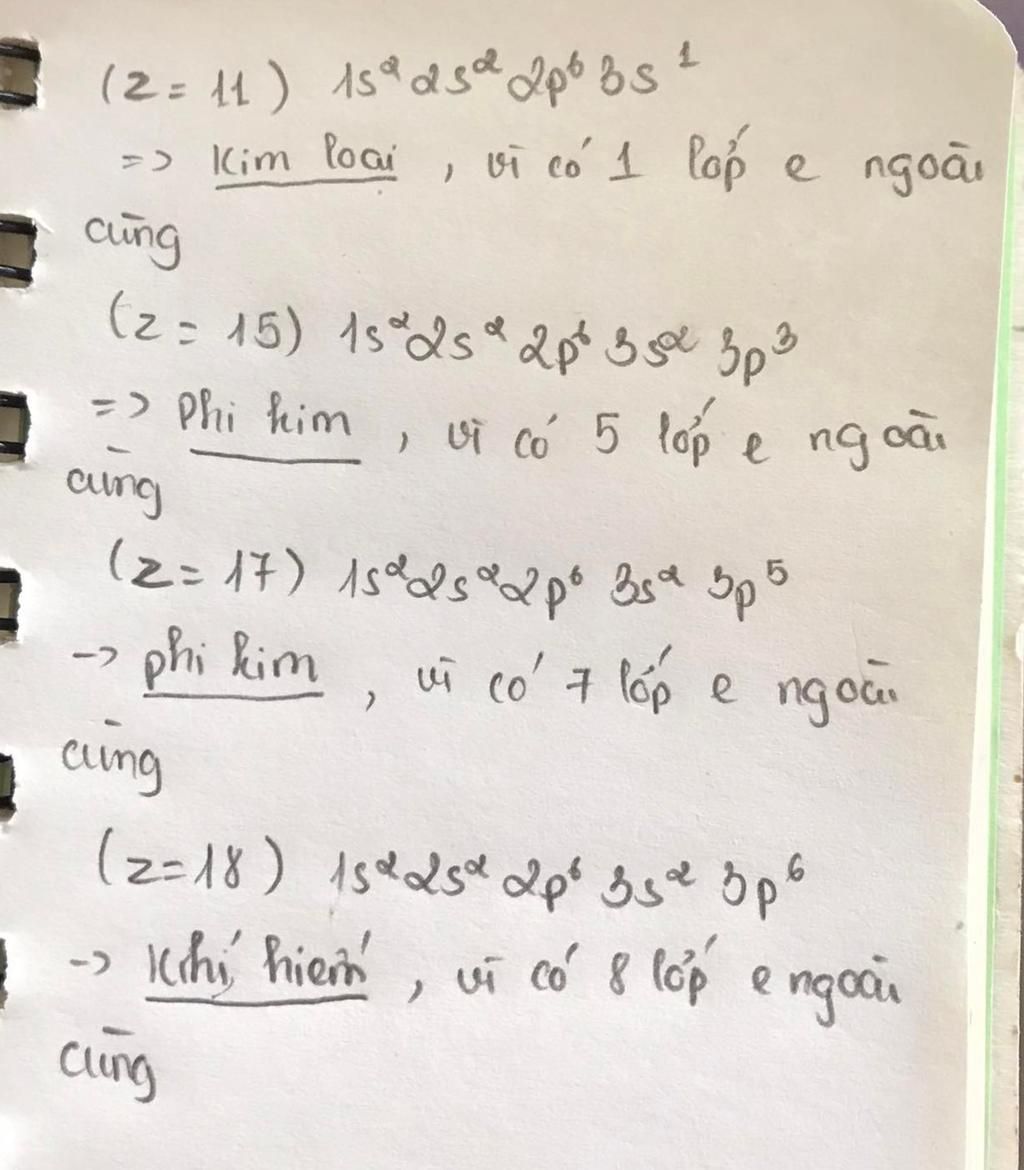 (Z = 11) 1s² 2s² 2p⁶ 3s¹
=> Kim loại, vì có 1 lớp e ngoài
cùng
(Z = 15) 1s² 2s² 2p⁶ 3s² 3p³
=> Phi kim, vì có 5 lớp e ngoài
cùng
(Z = 17) 1s² 2s² 2p⁶ 3s² 3p⁵
-> phi kim, vì có 7 lớp e ngoài
cùng
(Z=18) 1s² 2s² 2p⁶ 3s² 3p⁶
-> Khí hiếm, vì có 8 lớp e ngoài
cùng